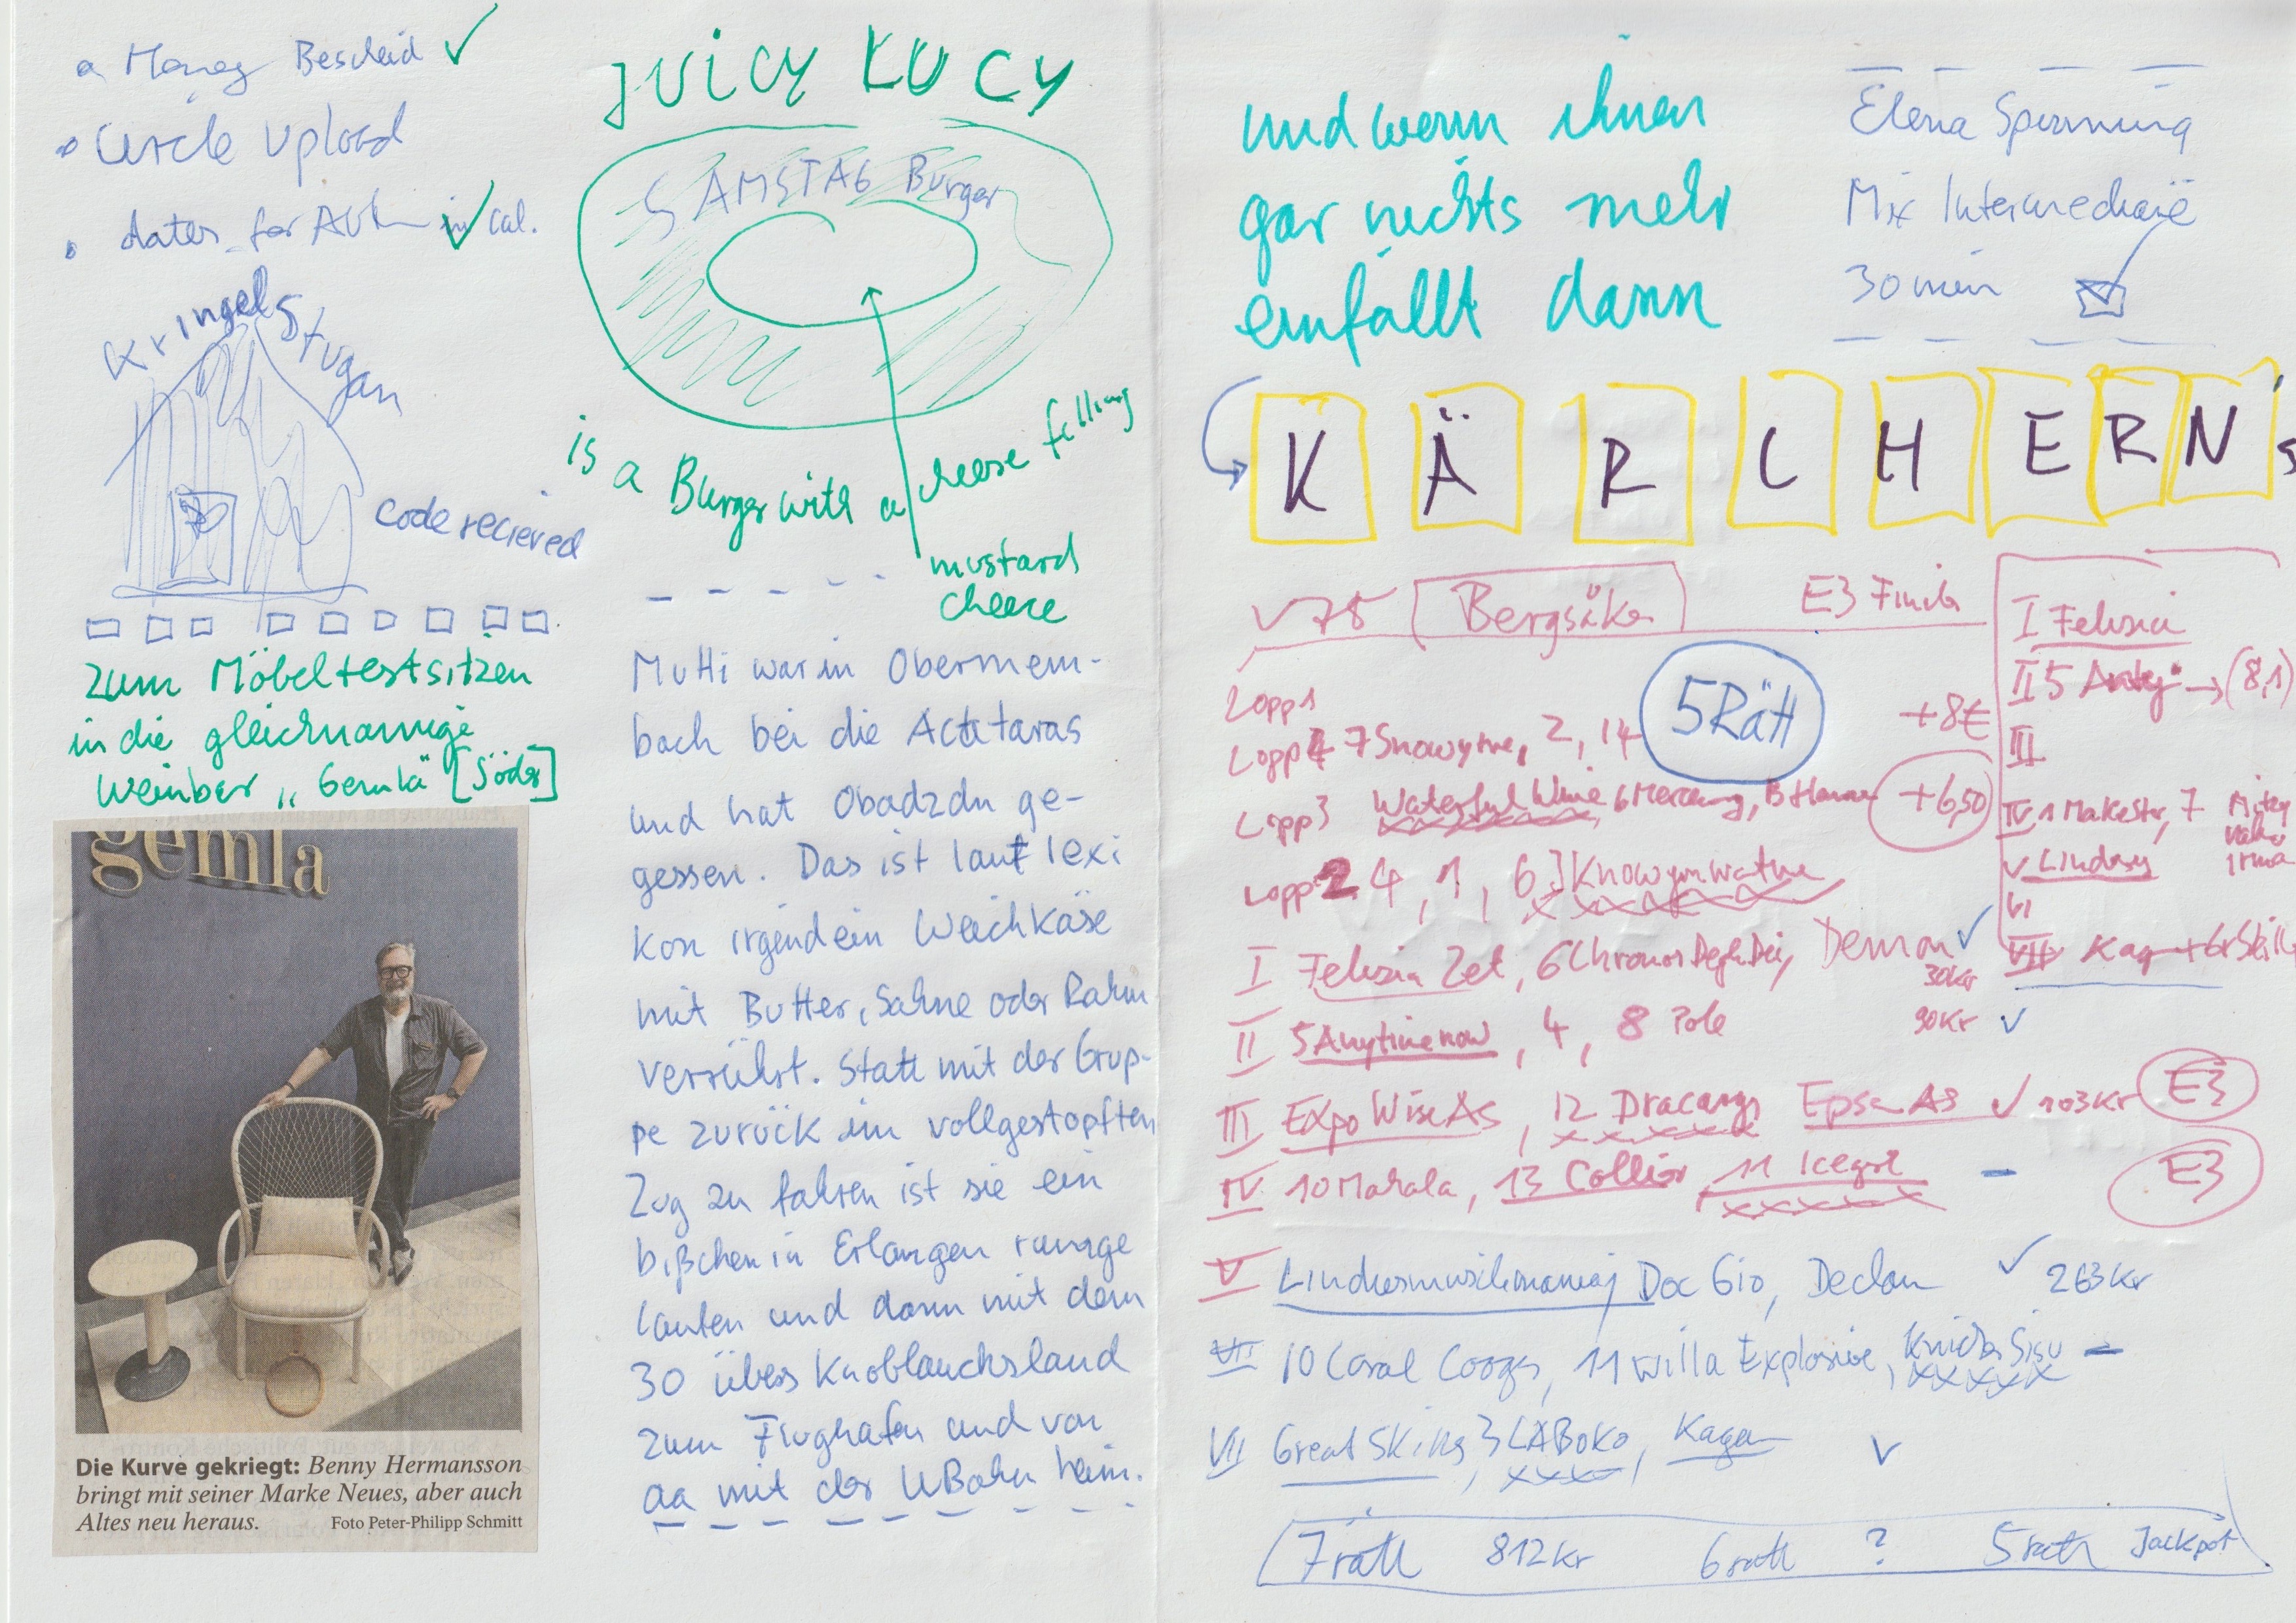 Money Bescheid ✓
Circle Upload
dates for in Cal. ✓
Kringelstugan
code recieved
zum Möbeltestsitzen
in die gleichnamige
Weinbar „Gemla" [Söder]
gemla
Die Kurve gekriegt: Benny Hermansson
bringt mit seiner Marke Neues, aber auch
Altes neu heraus. Foto Peter-Philipp Schmitt
JUICY LUCY
SAMSTAG Burger
is a Burger with a cheese filling
mustard
cheese
Mutti war in Obermem-
bach bei die
und hat Obadzdn ge-
gessen. Das ist laut lexi
kon irgendein Weichkäse
mit Butter, Sahne oder Rahm
verrührt. Statt mit der Grup-
pe zurück im vollgestopften
Zug zu fahren ist sie ein
bißchen in Erlangen rumge
laufen und dann mit dem
30 übers Knoblauchsland
zum Flughafen und von
da mit der UBahn heim.
und wenn ihnen
gar nichts mehr
einfällt dann
Elena Spinning
Mix Intermediaire
30 min
KÄRCHERN's
V75 Bergsåker E3 Finish
5 Rätt
Lopp 1
+8€
Lopp 4 7 2, 14
Lopp 3 +6,50
Lopp 2 4, 1, 6
I Felizia Zet, 6 Chronos Degli Dei, ✓
30kr
II 5 Anytimenow, 4, 8 Pole 90kr ✓
III Expo Wise As, 12 ✓ 103kr E3
IV 10 Mahala, 13 Collier, 11 – E3
V Doc Gio, Declan ✓ 263kr
VI 10 11 Willa Explosive, Sisu –
VII Great Skills, 3 Kagan ✓
7 rätt 812kr 6 rätt ? 5 rätt Jackpot
I Felizia
II 5 → (8,1)
III
IV 1 7
V Lindsey
VI
VII